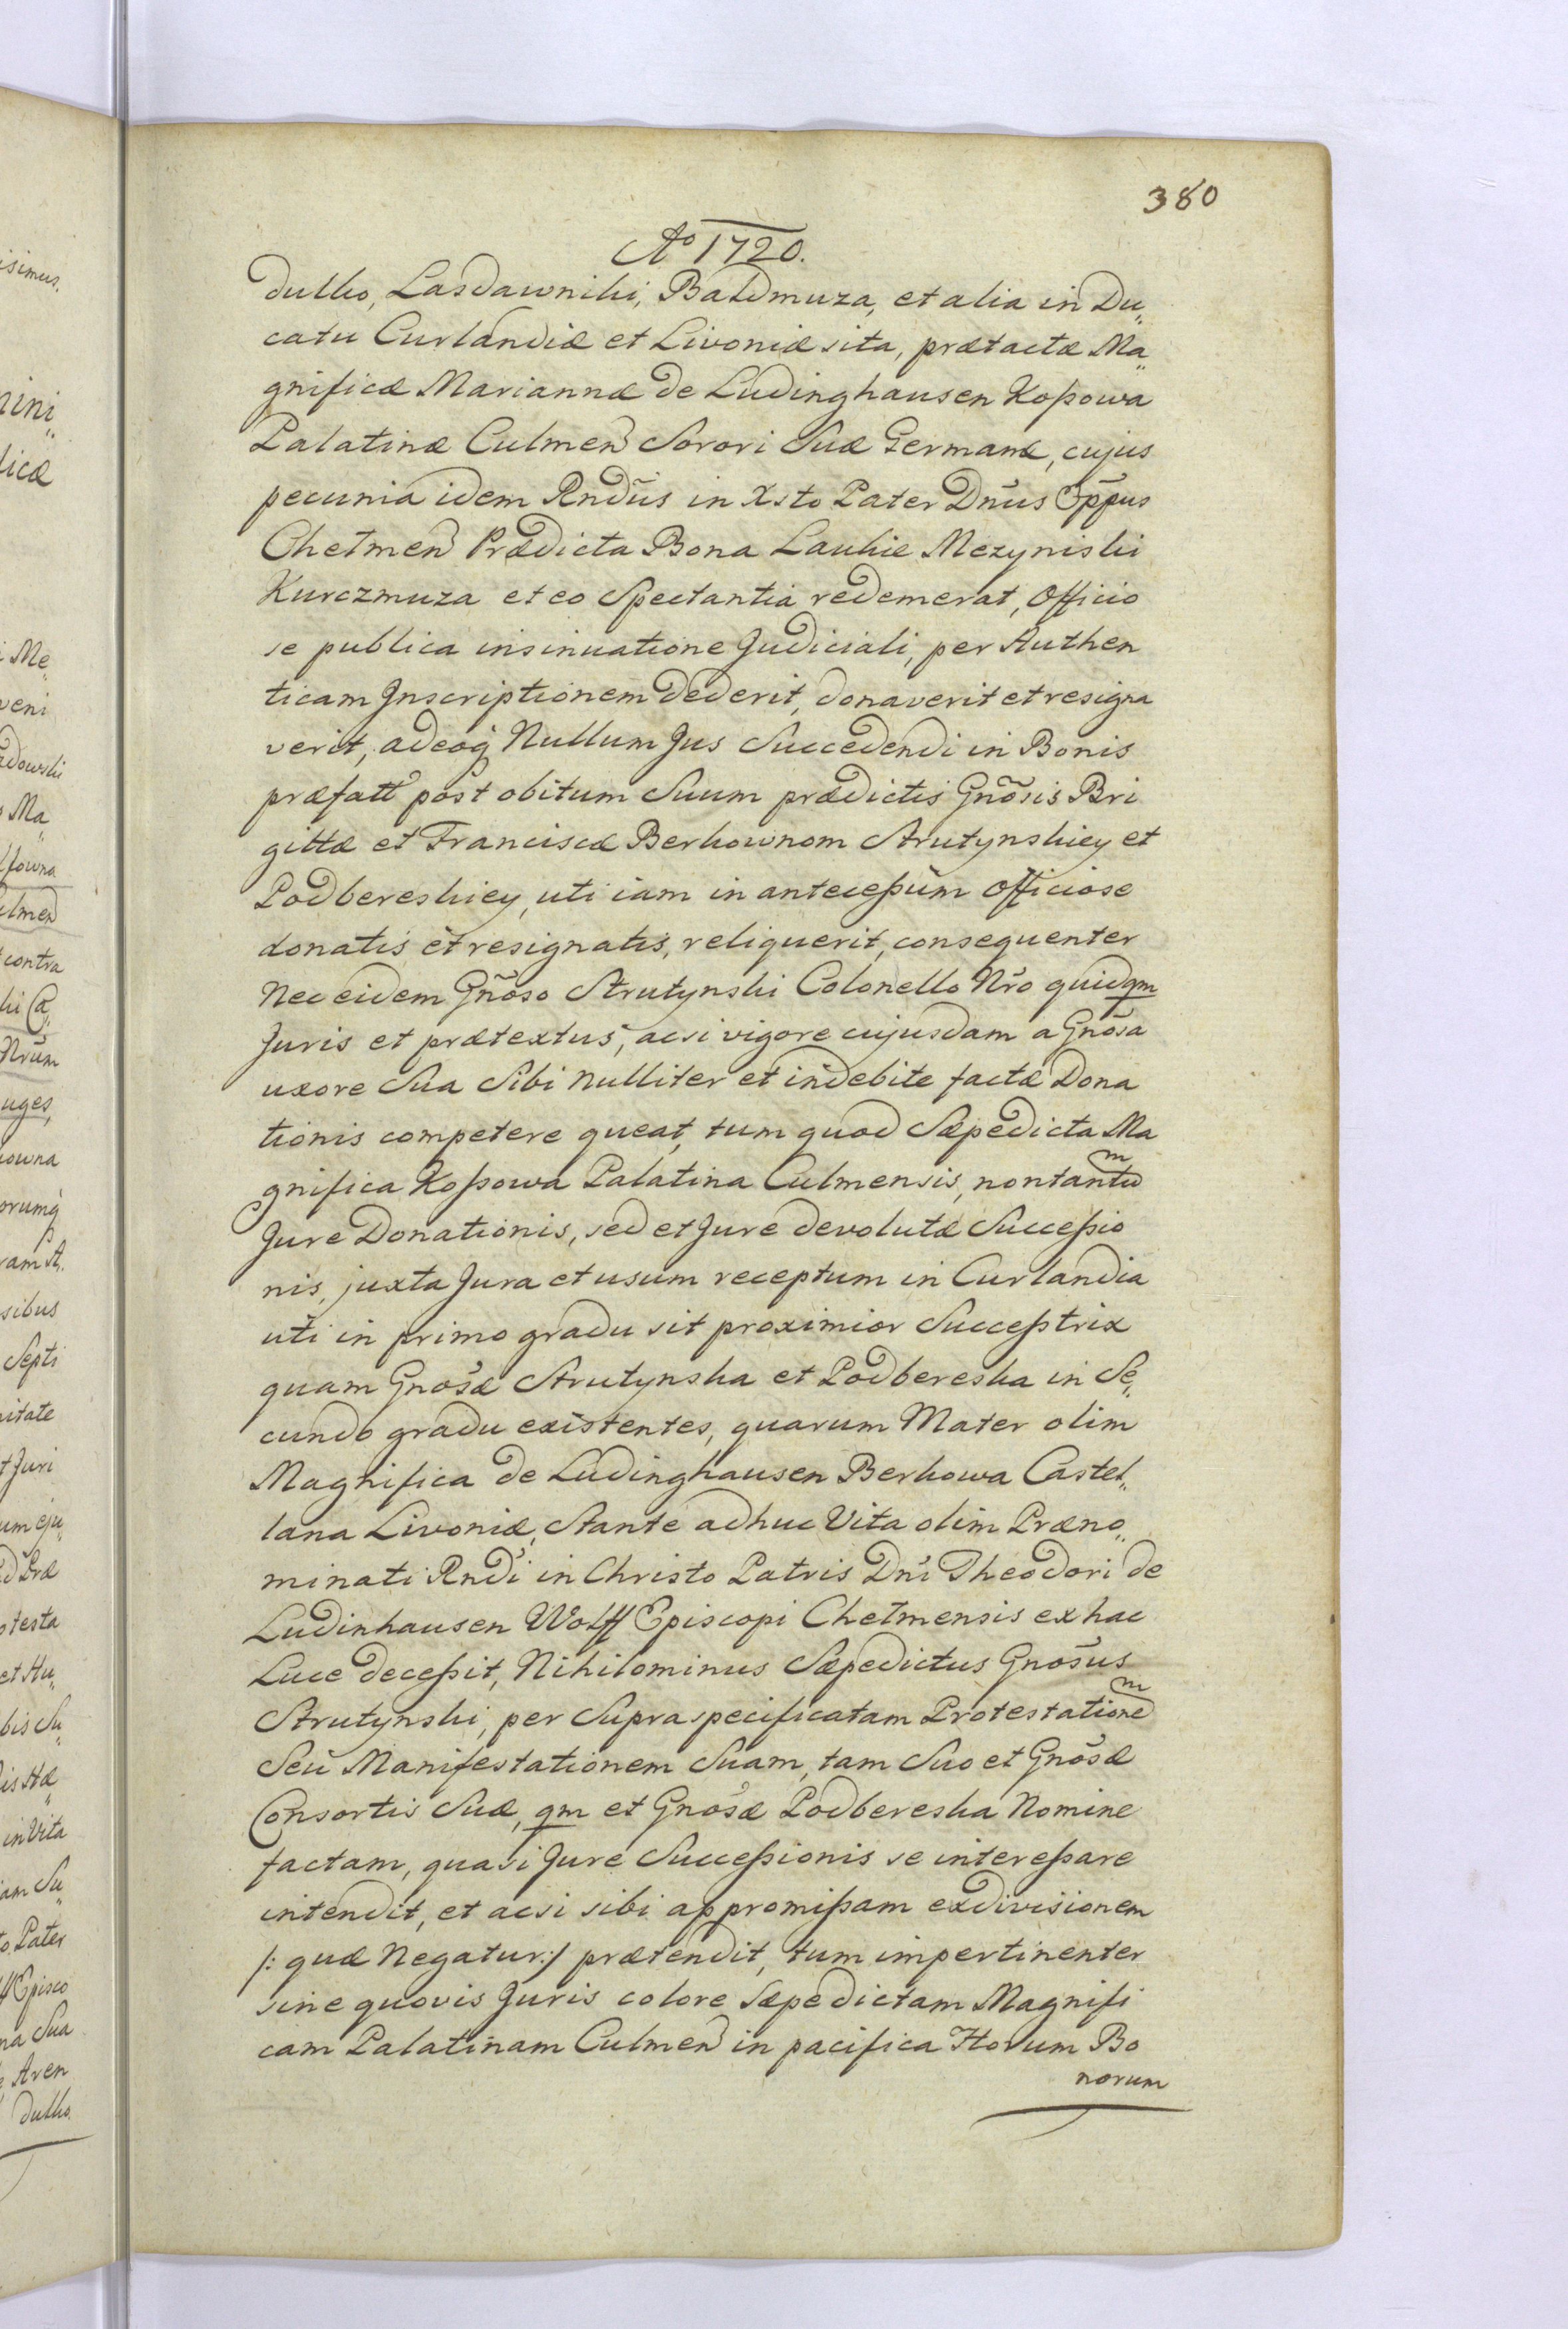 380
Ao 1720.
dulko, Lasdawniki, Baldmuza, et alia in Du„
catu Curlandiæ et Livoniæ sita, prætactæ Ma„
gnificæ Mariannæ de Ludinghausen Koßowa
Palatinæ Culmen Sorori Suæ Germanæ, cujus
pecunia idem Rndus in Xsto Pater Dnus Eppus
Chełmen Prædicta Bona Laukie Mezyniski
Kurczmuza et eo Spectantia redemerat, Officio
se publica insinuatione Judiciali, per Authen
ticam Inscriptionem dederit, donaverit et resigna
verit, adeoq Nullum Jus Succedendi in Bonis
præfatt post obitum Suum prædictis Gnosis Bri
gittæ et Franciscæ Berkownom Strutynskiey et
Podbereskiey, uti iam in anteceßum officiose
donatis et resignatis, reliquerit, consequenter
Nec eidem Gnoso Strutynski Colonello Nro quidqm
Juris et prætextus, acsi vigore cujusdam a Gnosa
uxore Sua Sibi Nulliter et indebite factæ Dona
tionis competere queat, tum quod Sæpedicta Ma
gnifica Koßowa Palatina Culmensis, non tantum
Jure Donationis, sed et Jure devolutæ Succeßio
nis, juxta Jura et usum receptum in Curlandia
uti in primo gradu sit proximior Succeßtrix
quam Gnosæ Strutynska et Podbereska in Se„
cundo gradu existentes, quarum Mater olim
Magnifica de Ludinghausen Berkowa Castel„
lana Livoniæ, Stante adhuc Vita olim Præno„
minati Rndi in Christo Patris Dni Theodori de
Ludinhausen Wolff Episcopi Chełmensis ex hac
Luce deceßit, Nihilominus Sæpedictus Gnosus
Strutynski, per Supraspecificatam Protestationem
Seu Manifestationem Suam, tam Suo et Gnosæ
Consortis Suæ, qm et Gnosæ Podbereska Nomine
factam, quasi Jure Succeßionis se intereßare
intendit, et acsi sibi appromißam exdivisionem
/: quæ Negatur :/ prætendit, tum impertinenter
sine quovis Juris colore Sæpedictam Magnifi
cam Palatinam Culmen in pacifica Horum Bo
norum
isimus.
nini„
licæ
i Me„
veni
adowski
s Ma„
lfowna
ulmen
t contra
ki Ca„
Nrum
uges,
kowna
orumq
ram A„
sibus
Septi
nitate
t Juri
um eju„
d Præ
otesta
et Hu„
bis Su„
lis Hæ„
in Vita
iam Su„
to Pater
ff Episco
na Sua
e Aren
dulko